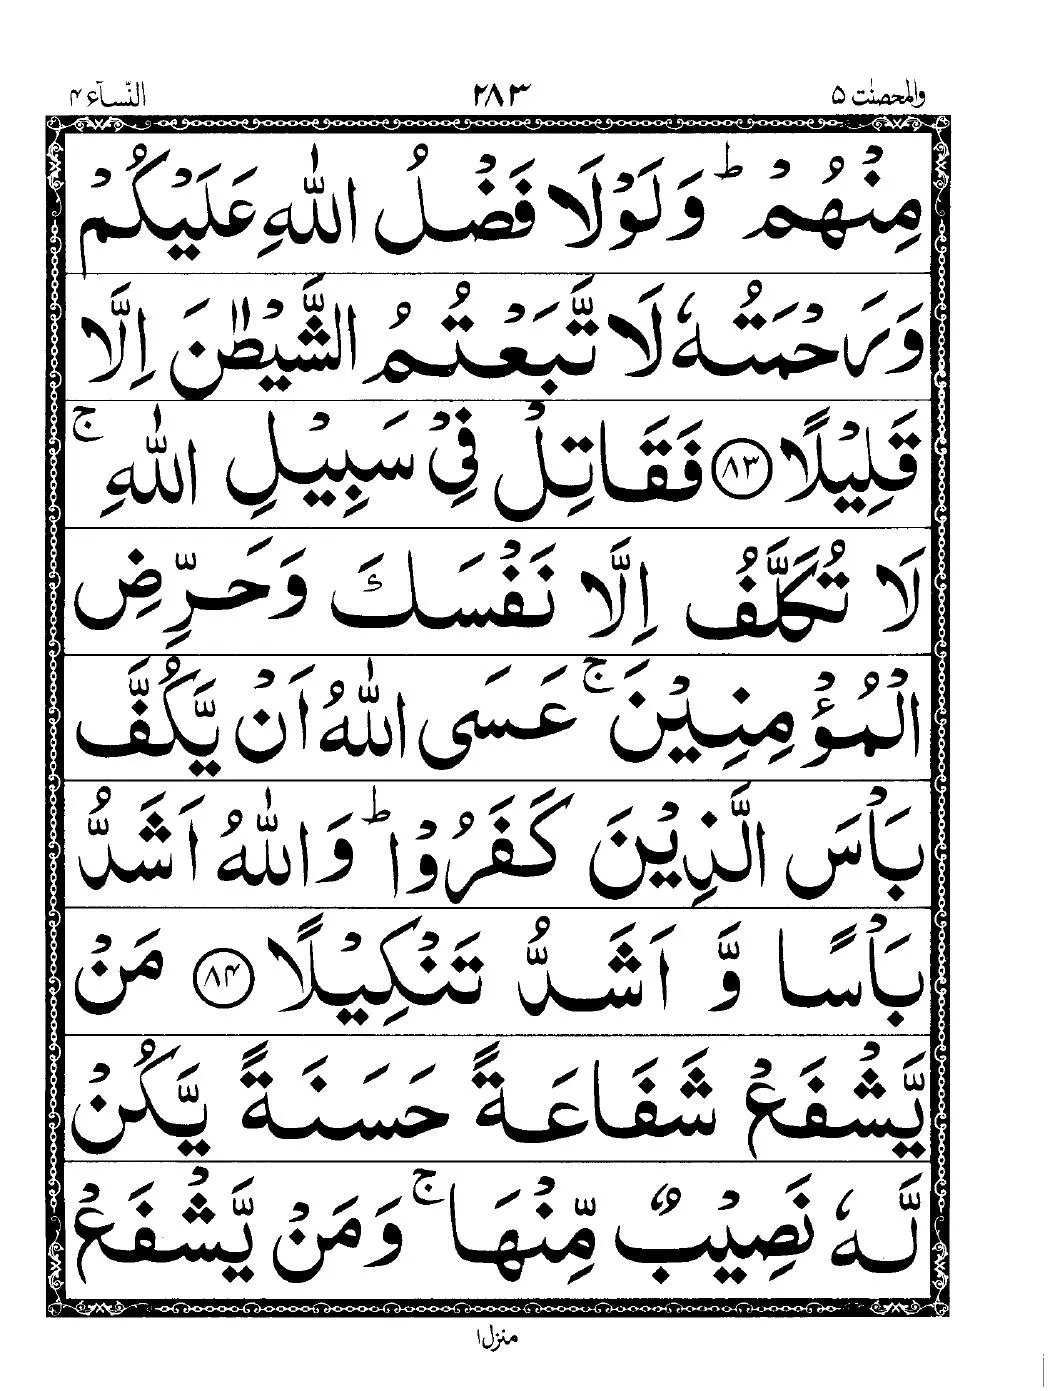 والمحصنت ۵ ۲۸۳ النسآء ۴
مِنْهُمْ ؕ وَلَوْلَا فَضْلُ اللّٰهِ عَلَيْكُمْ
وَرَحْمَتُهٗ لَا تَّبَعْتُمُ الشَّيْطٰنَ اِلَّا
قَلِيْلًا ﴿۸۳﴾ فَقَاتِلْ فِيْ سَبِيْلِ اللّٰهِ ۚ
لَا تُكَلَّفُ اِلَّا نَفْسَكَ وَحَرِّضِ
الْمُؤْمِنِيْنَ ۚ عَسَى اللّٰهُ اَنْ يَّكُفَّ
بَاْسَ الَّذِيْنَ كَفَرُوْا ؕ وَاللّٰهُ اَشَدُّ
بَاْسًا وَّ اَشَدُّ تَنْكِيْلًا ﴿۸۴﴾ مَنْ
يَّشْفَعْ شَفَاعَةً حَسَنَةً يَّكُنْ
لَّهٗ نَصِيْبٌ مِّنْهَا ۚ وَمَنْ يَّشْفَعْ
منزل ۱